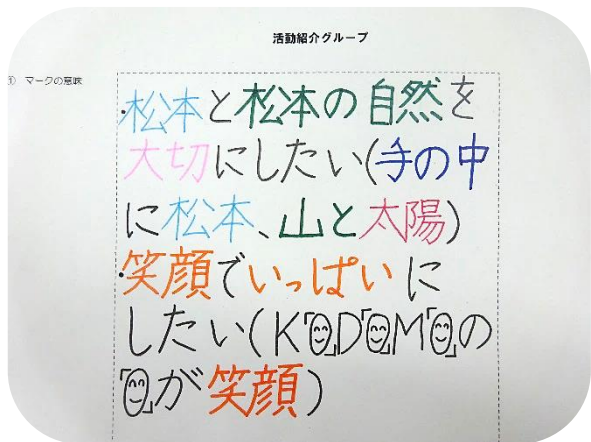 活動紹介グループ
① マークの意味
・松本と松本の自然を
大切にしたい(手の中
に松本、山と太陽)
・笑顔でいっぱいに
したい(K「O」D「O」M「O」の
「O」が笑顔)